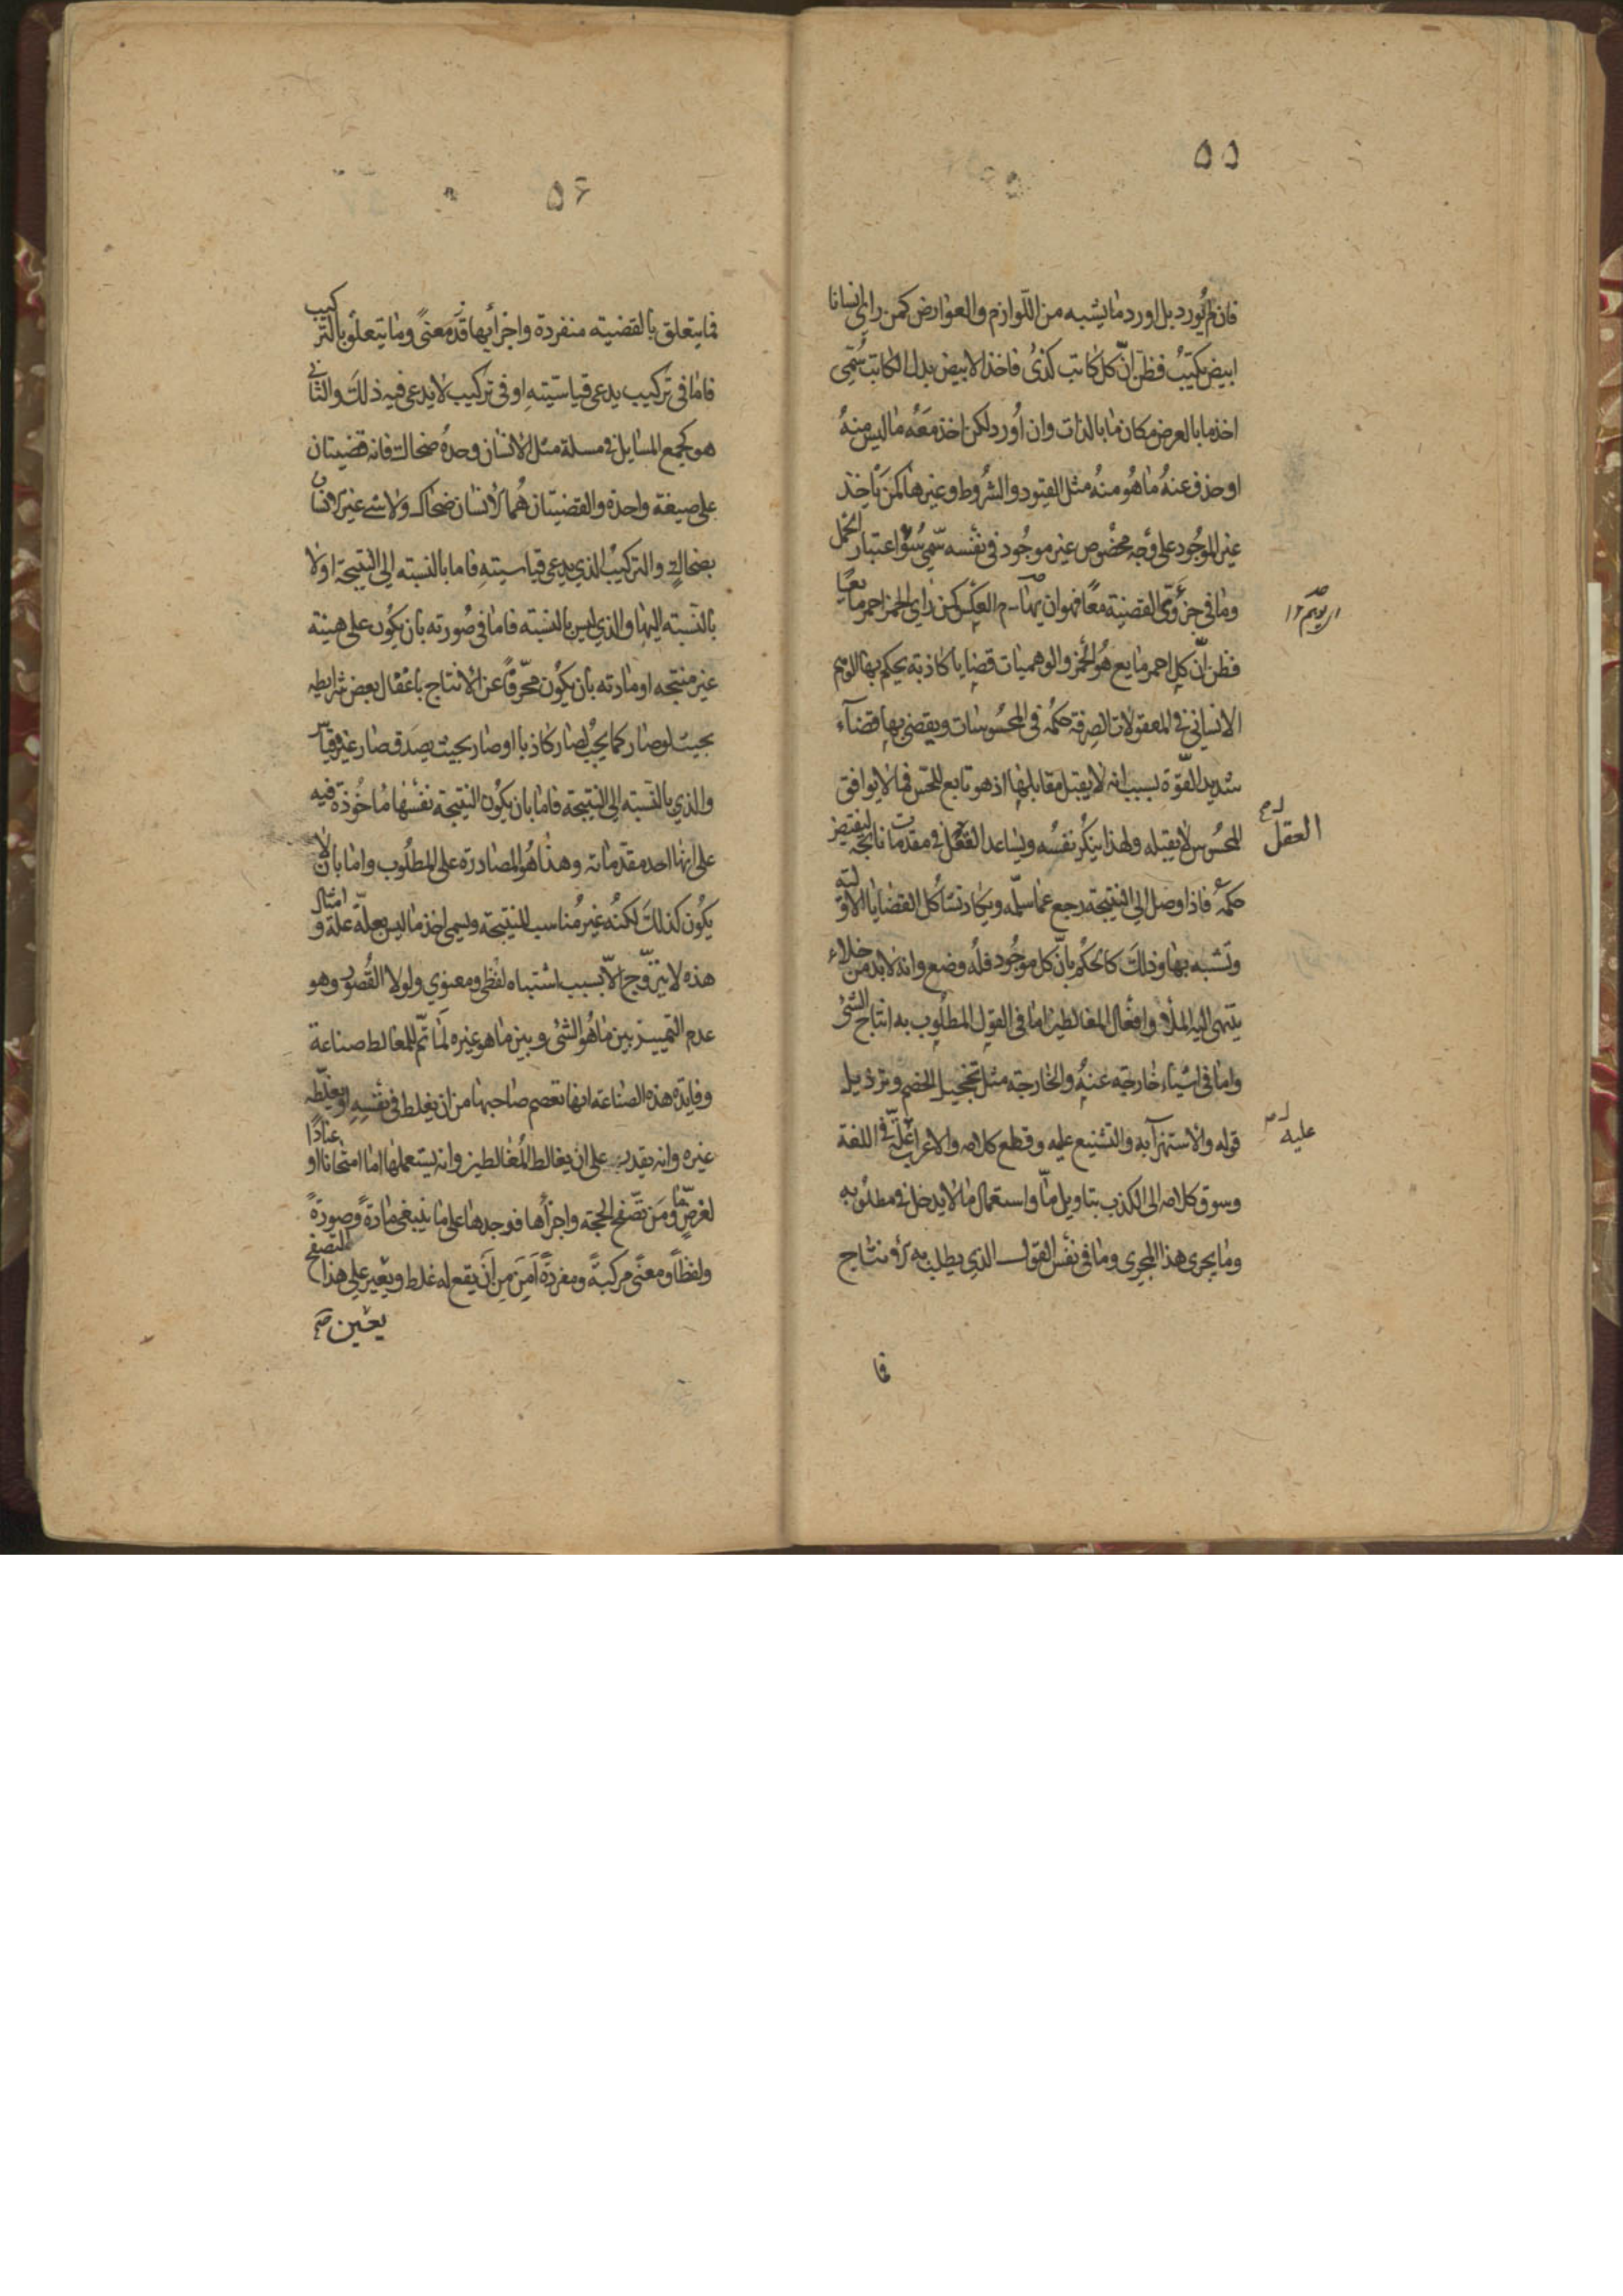 ٥٥
فان لم يُورد بل اورد ما يشبه من اللّوازم والعوارض كمن راى انسانا
ابيض يكتبُ فظن انّ كل كاتب كذىٰ فاخذ الابيض بدل الكاتب سُمّى
اخذ ما بالعرض مكان ما بالذات وان اُورد لكن اخذ مَعَهُ ما ليس منهُ
او حذف عنهُ ما هُو منهُ مثل القيود والشروط وغيرها كمن يأخذ
غير الموجُود على وَجهٍ مخصُوص غير موجُود فى نفسه سمّى سُؤَ اعتبار الحمل
وما فى جزؤى القضيّة معًا فهو ان العكس كمن راى الخمر احمر مايعًا
فظن انّ كل احمر مايع هُو الخمر والوهميات قضايا كاذبة يحكم بها الوهم
الانسانى فى المعقولات الصرفة حكمُه فى المحسُوسات ويقضى بها قضآء
شديد القوّة بسبب انه لا يقبل مقابلها اذ هو تابع للحس فما لا يوافق
المحسُوس لا يقبله ولهذا ينكر نفسُه ويساعد العقل فى مقدمات ناتجة لنقيض
العقل
حكمه فاذا وصل الى النتيجة رجع عما سلّمه ويكاد تشاكل القضايا الاوّلية
وتشبه بها وذلكَ كالحكم بانّ كل موجُود فلهُ وضع وانه لابد من خلاء
ينتهى اليه الملأ وافعال المغالطين اما فى القول المطلوب به انتاج الشئ
واما فى اشياء خارجة عنهُ والخارجة مثل تخجيل الخصم وترذيل
قوله والاستهزآ به والتشنيع عليه وقطع كلامه والاغراب عليه فى اللغة
عليه
وسوق كلامه الى الكذب بتاويل مّا واستعمال ما لا يدخل فى مطلُوبه
وما يجرى هذا المجرى وما فى نفس القول الذى يطلب به الانتاج
فما
٥۶
فما يتعلق بالقضية منفردة واجزأيها قدّ معنىً وما يتعلق بالتركيب
فاما فى تركيب يدعى قياسيّته او فى تركيب لا يدعى فيه ذلكَ والثانى
هو كجمع المسايل فى مسلة مثل الانسان وحدهُ ضحاك فانه قضيتان
على صيغة واحدة والقضيتان هُما الانسان ضحاك ولا شئ غير الانسان
بضحاكٍ والتركيبُ الذى يدعى قياسيته فاما بالنسبة الى النتيجة او لا
بالنسبة اليها والذى ليس بالنسبة فاما فى صُورته بان يكون على هيئة
غير منتجه او مادته بان يكون محرّفًا عن الانتاج باغفال بعض شرايطه
بحيث لو صار كما يجبُ لصار كاذبا او صار بحيث يصدق صار غير قياس
والذى بالنسبة الى النتيجة فاما بان يكون النتيجة نفسها ماخُوذة فيه
على انها احد مقدّماته وهذا هُو المصادرة على المطلُوب واما بان لا
يكون كذلكَ لكنهُ غير مُناسب للنتيجة ويسمى اخذ ما ليس بعلّة علّة وامثال
هذه لا يتروّج الاّ بسبب اشتباه لفظى ومعنوى ولولا القُصُور وهو
عدم التمييز بين ما هُو الشئ وبين ما هو غيره لَمَا تمّ للمغالط صناعة
وفايدة هذه الصناعة انها تعصم صاحبها من ان يغلط فى نفسِه او يغلّطه
غيره وانه يقدر على ان يغالط المُغالطين وانه يستعملها اما امتحانا او عنادًا
لغرضٍ مّا ومَن تصّفح الحجة واجزأها فوجدها على ما ينبغى مادةً وصورةً
ولفظًا ومعنًى مركبةً ومفردةً اَمِنَ من ان يقع له غلط ويعير على هذا التصفح
يعين